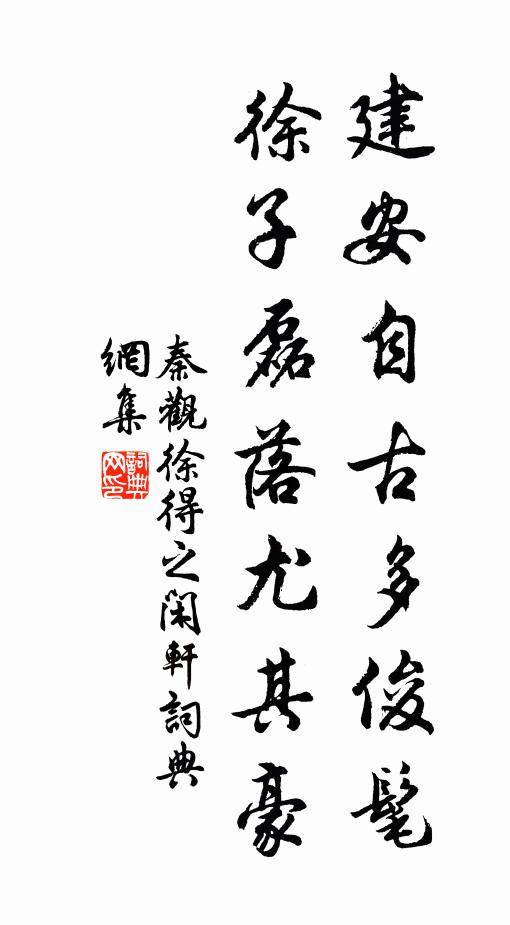 建安自古多俊髦
徐子磊落尤其豪
秦觀徐得之閑軒詞典
網集
詞典網印